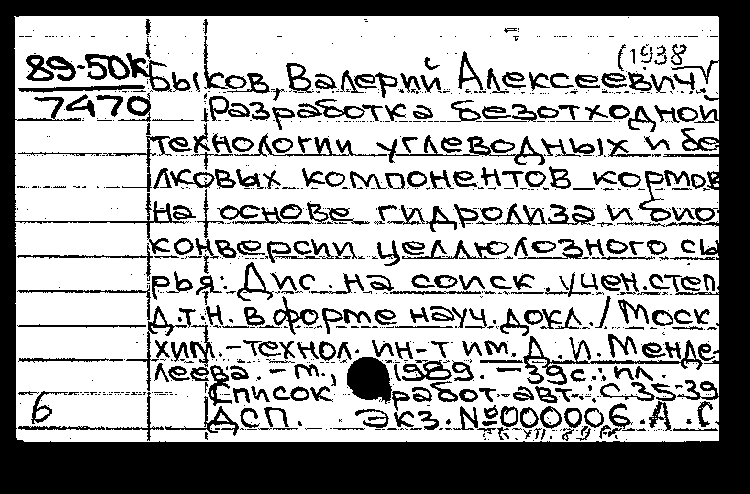 (1938
89-50к Быков, Валерий Алексеевич.
7470 Разработка безотходной
технологии углеводных и бе
лковых компонентов кормов
на основе гидролиза и био
конверсии целлюлозного сы
рья: Дис. на соиск. учен. степ.
д.т.н. в форме науч. докл. / Моск.
хим.-технол. ин-т им. Д. И. Менде
леева. - м., 1989. - 39с.: ил.
Список работ авт.: с 35-39
6 ДСП. Экз. №000006. А. С.